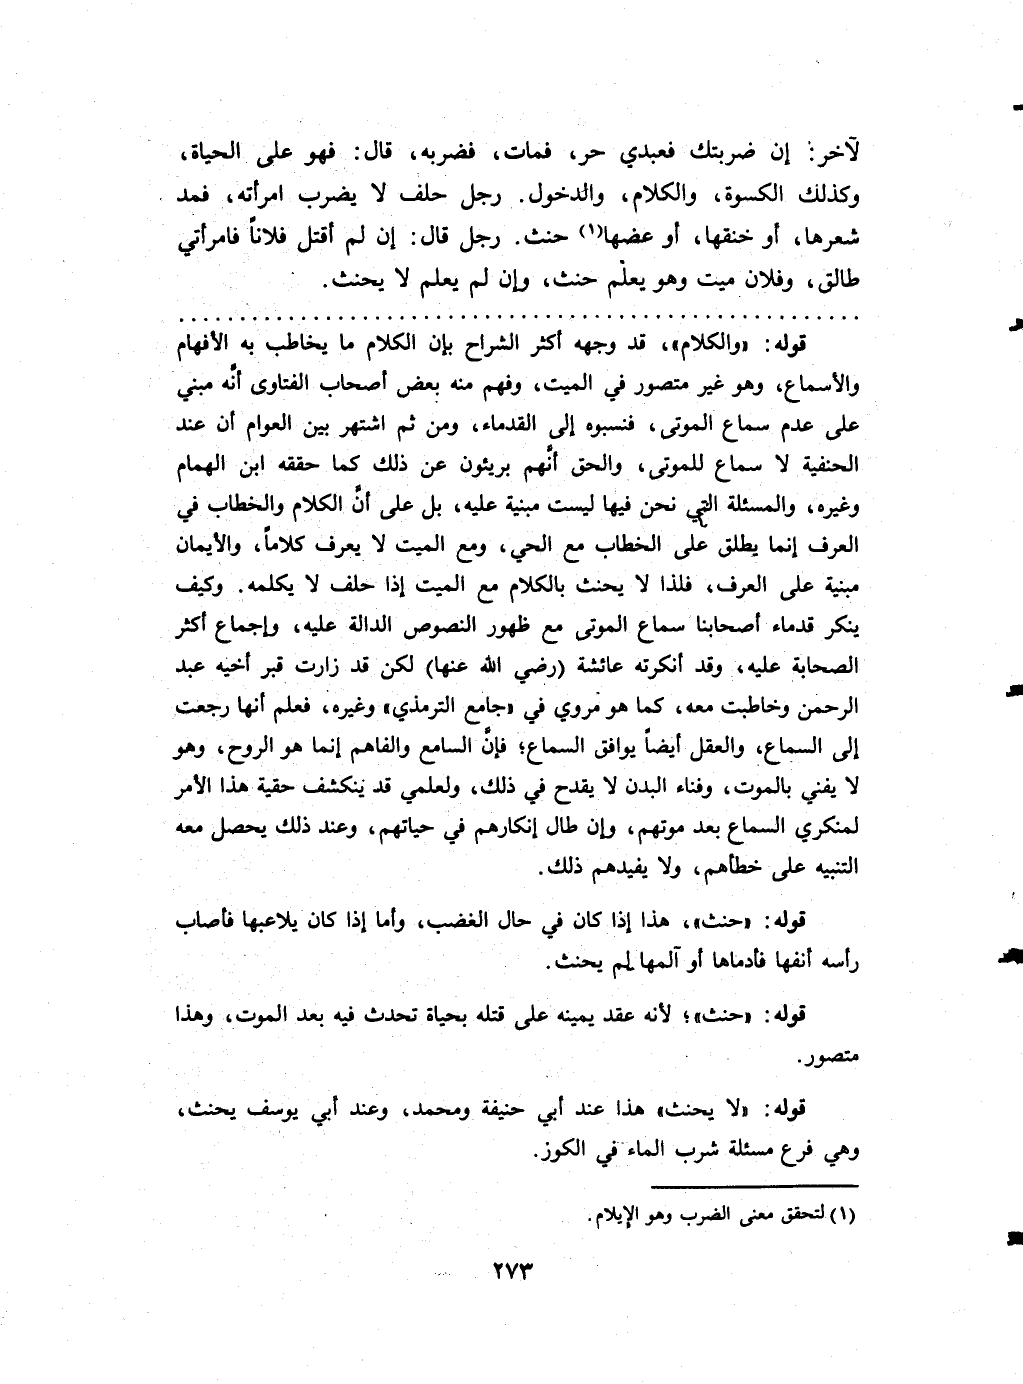 لآخر: إن ضربتك فعبدي حر، فمات، فضربه، قال: فهو على الحياة،
وكذلك الكسوة، والكلام، والدخول. رجل حلف لا يضرب امرأته، فمد
شعرها، أو خنقها، أو عضها(١) حنث. رجل قال: إن لم أقتل فلاناً فامرأتي
طالق، وفلان ميت وهو يعلم حنث، وإن لم يعلم لا يحنث.
قوله: «والكلام»، قد وجهه أكثر الشراح بإن الكلام ما يخاطب به الأفهام
والأسماع، وهو غير متصور في الميت، وفهم منه بعض أصحاب الفتاوى أنَّه مبني
على عدم سماع الموتى، فنسبوه إلى القدماء، ومن ثم اشتهر بين العوام أن عند
الحنفية لا سماع للموتى، والحق أنَّهم بريئون عن ذلك كما حققه ابن الهمام
وغيره، والمسئلة التي نحن فيها ليست مبنية عليه، بل على أنَّ الكلام والخطاب في
العرف إنما يطلق على الخطاب مع الحي، ومع الميت لا يعرف كلاماً، والأيمان
مبنية على العرف، فلذا لا يحنث بالكلام مع الميت إذا حلف لا يكلمه. وكيف
ينكر قدماء أصحابنا سماع الموتى مع ظهور النصوص الدالة عليه، وإجماع أكثر
الصحابة عليه، وقد أنكرته عائشة (رضي الله عنها) لكن قد زارت قبر أخيه عبد
الرحمن وخاطبت معه، كما هو مروي في «جامع الترمذي» وغيره، فعلم أنها رجعت
إلى السماع، والعقل أيضاً يوافق السماع؛ فإنَّ السامع والفاهم إنما هو الروح، وهو
لا يفني بالموت، وفناء البدن لا يقدح في ذلك، ولعلمي قد ينكشف حقية هذا الأمر
لمنكري السماع بعد موتهم، وإن طال إنكارهم في حياتهم، وعند ذلك يحصل معه
التنبيه على خطأهم، ولا يفيدهم ذلك.
قوله: «حنث»، هذا إذا كان في حال الغضب، وأما إذا كان يلاعبها فأصاب
رأسه أنفها فأدماها أو آلمها لم يحنث.
قوله: «حنث»؛ لأنه عقد يمينه على قتله بحياة تحدث فيه بعد الموت، وهذا
متصور.
قوله: «لا يحنث» هذا عند أبي حنيفة ومحمد، وعند أبي يوسف يحنث،
وهي فرع مسئلة شرب الماء في الكوز.
(١) لتحقق معنى الضرب وهو الإيلام.
٢٧٣